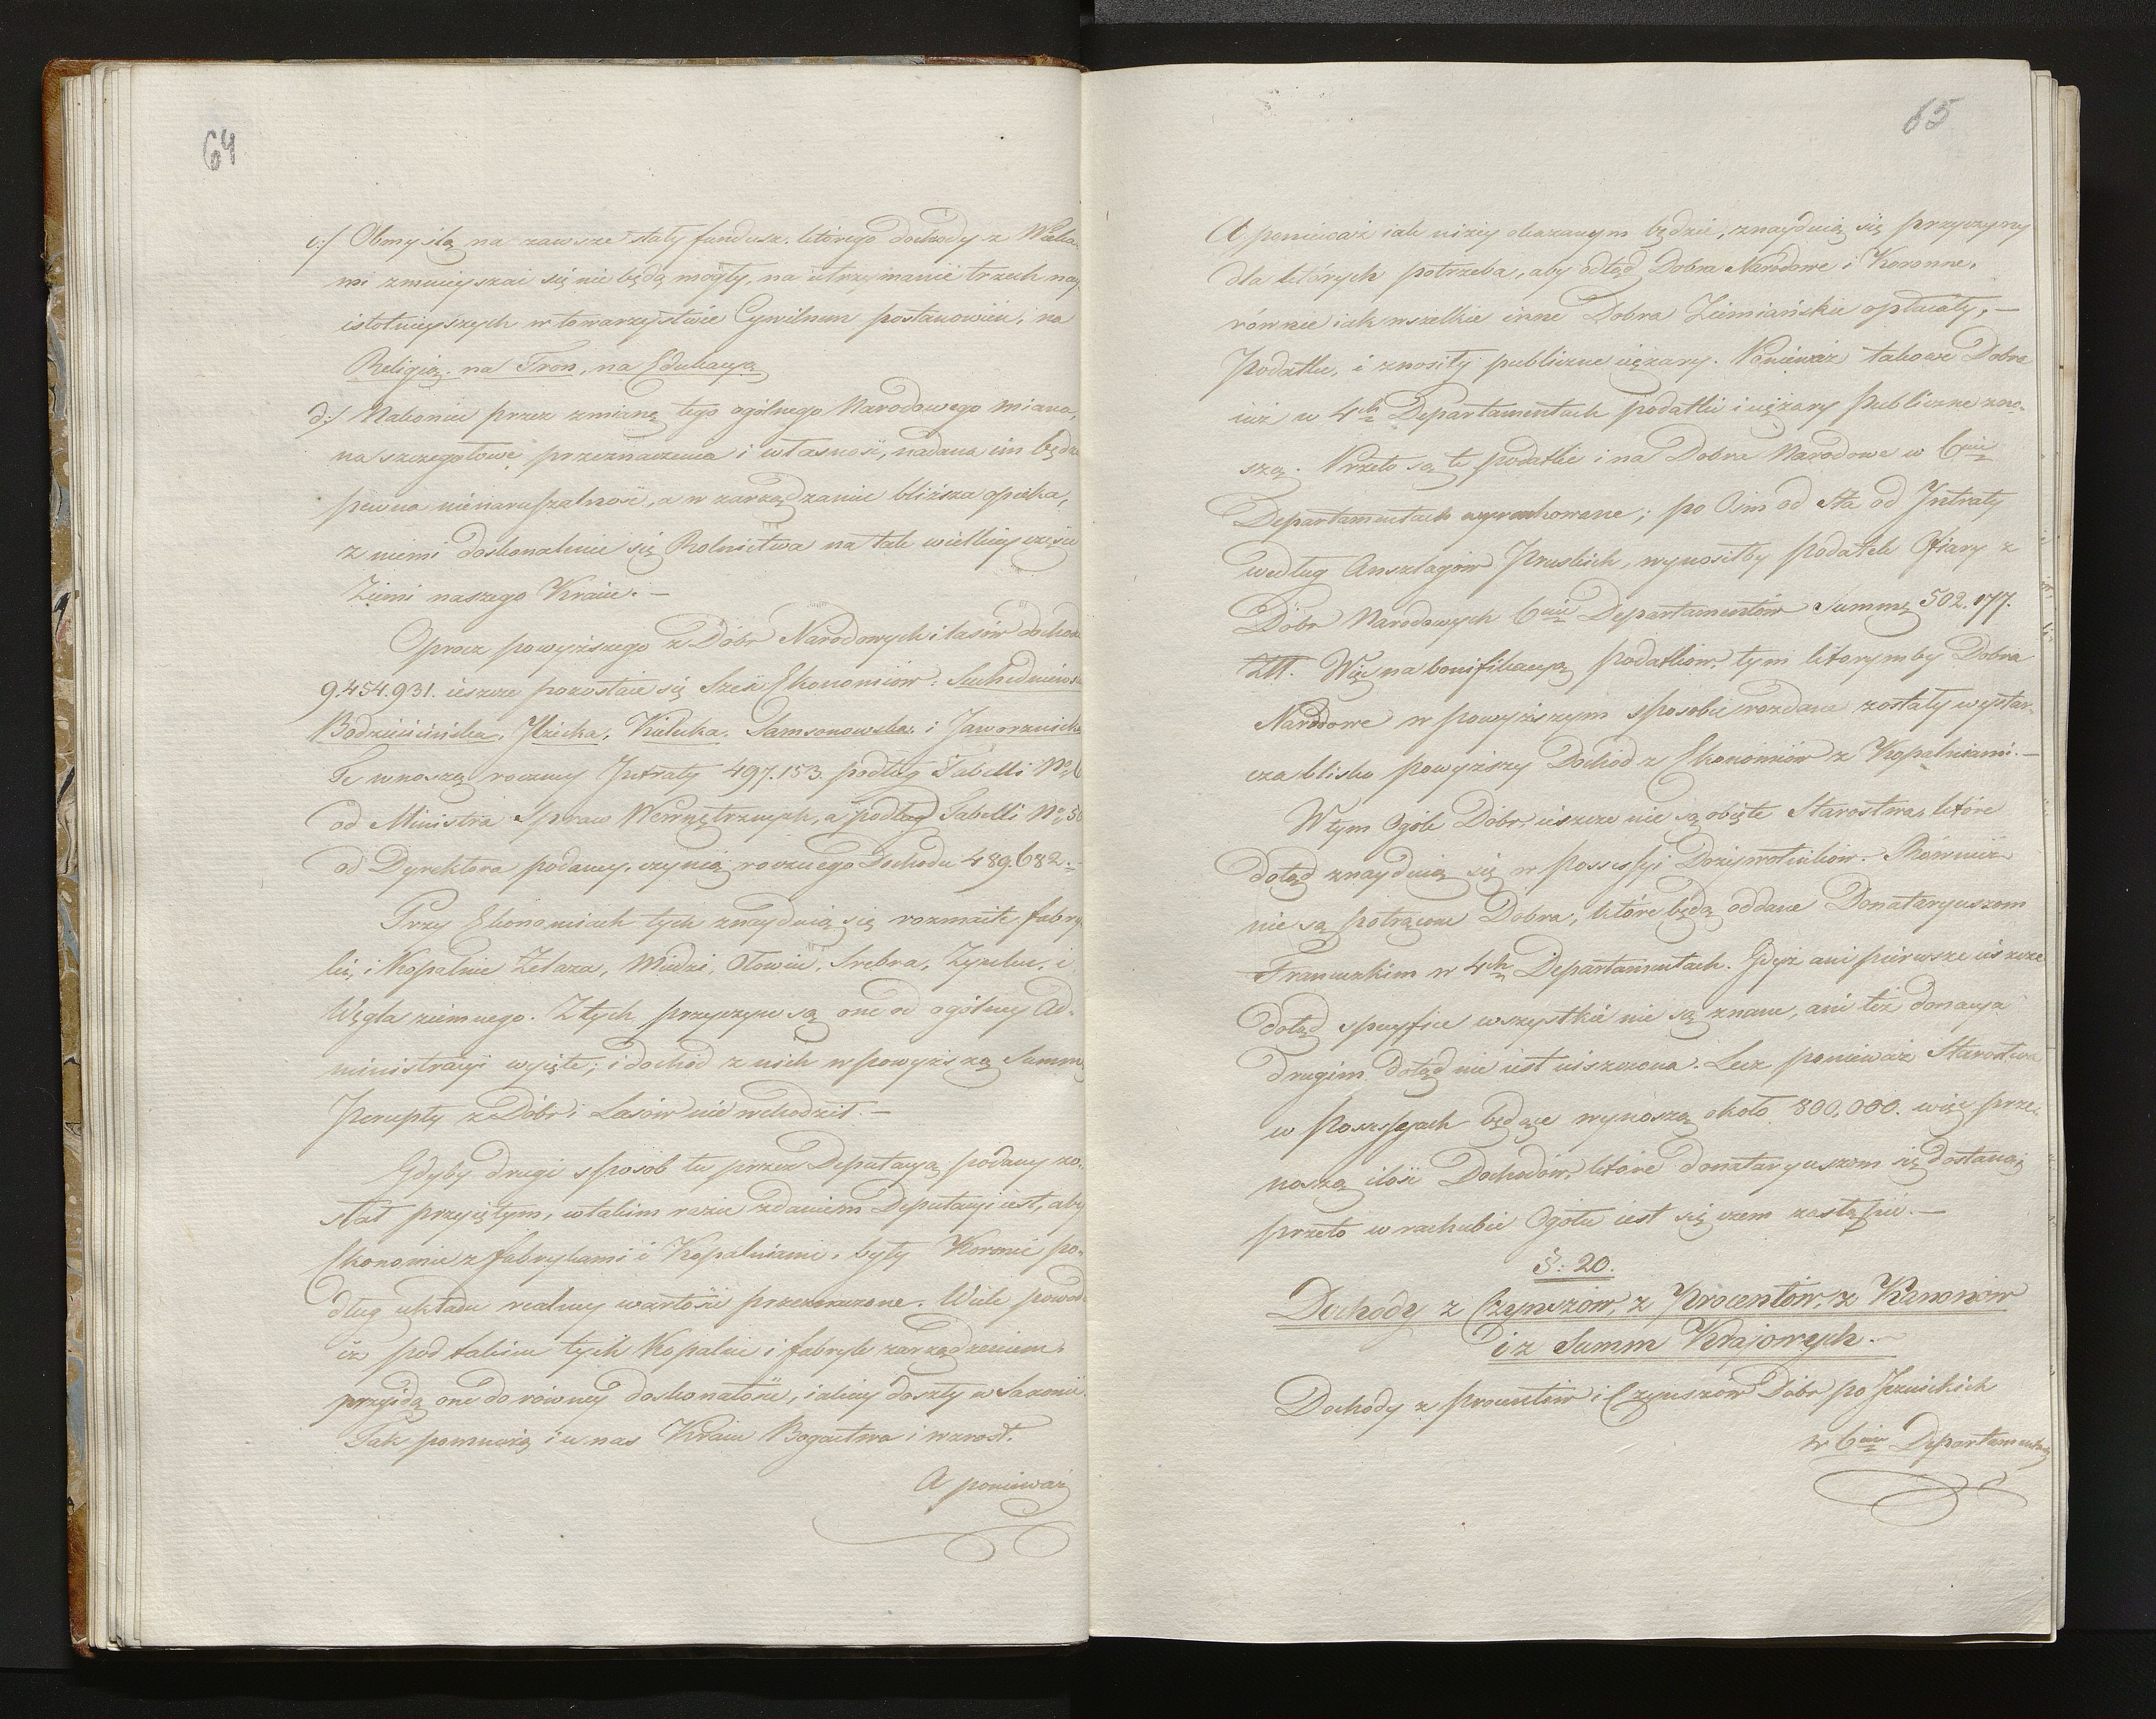 64
c:/ Obmyślą na zawsze stały fundusz, którego dochody z Wieka-
mi zmnieyszać się nie będą mogły, na utrzymanie trzech nay
istotnieyszych w towarzystwie Cywilnem postanowień, na
Religią, na Tron, na Edukacyą
d:/ Nakoniec przez zmianę tego ogólnego Narodowego miana,
na szczegółowe przeznaczenia i własność, nadana im będzie
pewna nienaruszalność, a w zarządzaniu bliższa opieka,
z niemi doskonalenie się Rolnictwa na tak wielkiey części
Ziemi naszego Kraiu. —
Oprocz powyższego z Dóbr Narodowych i lasów dochodu
9.454.931. ieszcze pozostaie się Sześć Ekonomiów: Suchedniowska
Bodzięcińska, Iłżecka, Kielecka, Samsonowska i Jaworznicka
Te wnoszą roczney Intraty 497.153. podług Tabelli No 6
od Ministra Spraw Wewnętrznych, a podług Tabelli No 50
od Dyrektora podaney, czynią rocznego Dochodu 489.682.—
Przy Ekonomiach tych znayduią się rozmaite fabry-
ki, i Kopalnie Żelaza, Miedzi, Ołowiu, Srebra, Zynku, i
Węgla ziemnego. Z tych przyczyn są one od ogólney Ad-
ministracyi wyięte, i dochód z nich w powyższą Summę
Percepty z Dóbr i Lasów nie wchodził. —
Gdyby drugi sposób tu przez Deputacyą podany zo-
stał przyiętym, w takim razie zdaniem Deputacyi iest, aby
Ekonomie z fabrykami i Kopalniami, były Koronie po-
dług układu realney wartości przeznaczone. Wiele powod
iż pod takim tych Kopalni i fabryk zarządzeniem,
przyidą one do równey doskonałości, iakiey doszły w Saxonii
Tak pomnożą i u nas Kraiu Bogactwa i wzrost.
A ponieważ
65
A ponieważ iak niżey okazanym będzie, znayduią się przyczyny
dla których potrzeba, aby odtąd Dobra Narodowe i Koronne,
równie iak wszelkie inne Dobra Ziemiańskie opłacały, —
Podatki, i znosiły publiczne ciężary. Ponieważ takowe Dobra
iuż w 4ch Departamentach podatki i ciężary Publiczne zno-
szą. Przeto są te podatki i na Dobra Narodowe w 6ciu
Departamentach wyrachowane; po Ośm od Sta od Intraty
według Anszlagów Pruskich, wynosiłby podatek Ofiary z
Dobr Narodowych 6ciu Departamentów Summę 502.177.
Złł. Więc na bonifikacyą podatkow, tym którymby Dobra
Narodowe w powyższym sposobie rozdane zostały wystar-
cza blisko powyższy Dochód z Ekonomiów z Kopalniami. —
W tym Ogóle Dóbr, ieszcze nie są obięte Starostwa, które
dotąd znayduią się w Possessyi Dożywotników. Równie
nie są potrącone Dobra, które będą oddane Donataryuszom
Francuzkim w 4ch Departamentach. Gdyż ani pierwsze ieszcze
dotąd specyfice wszystkie nie są znane, ani też donacya
drugim dotąd nie iest uiszczona. Lecz ponieważ Starostwa
w Possessyach będące wynoszą około 800,000. więc prze-
noszą ilość Dochodów, które donataryuszom się dostaną
przeto w rachubie Ogółu iest się czem zastąpić. —
§: 20.
Dochody z Czynszów, z Procentów, z Kanonów
i z Summ Krajowych. —
Dochody z procentów i Czynszów Dóbr po Jezuickich
w 6ciu Departamentach